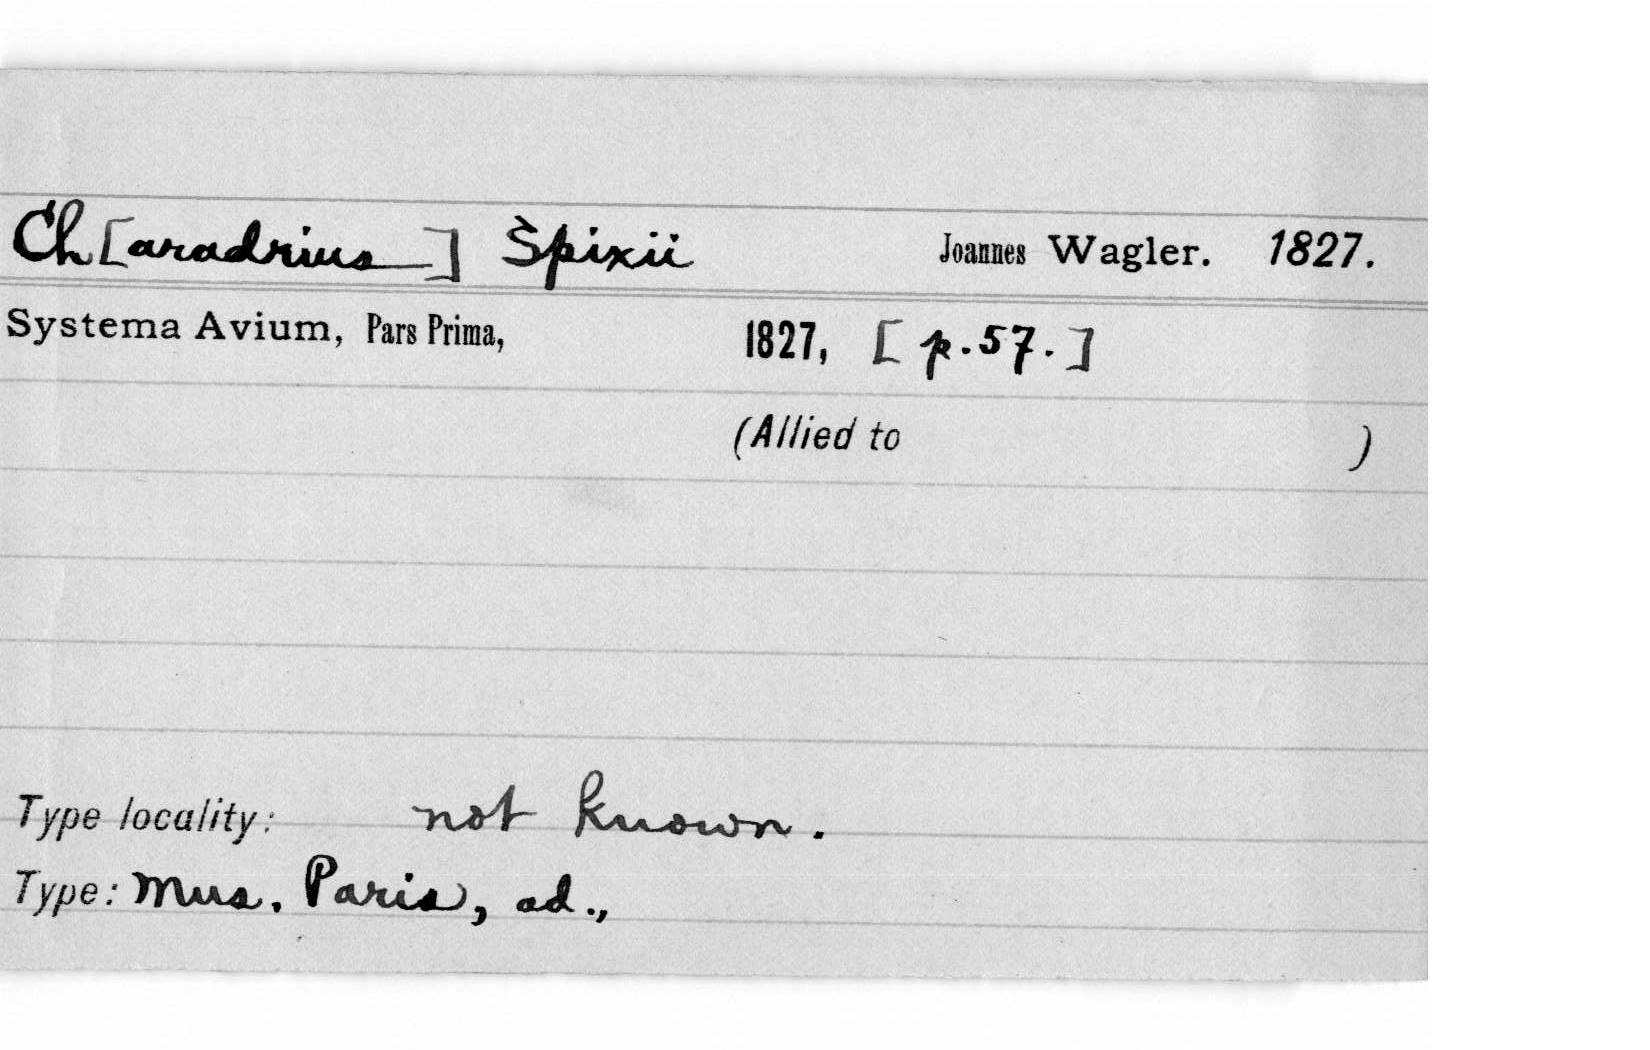 Ch[aradrius] Spixii Joannes Wagler. 1827.
Systema Avium, Pars Prima, 1827, [p. 57.]
(Allied to )
Type locality: not known.
Type: Mus. Paris, ad.,